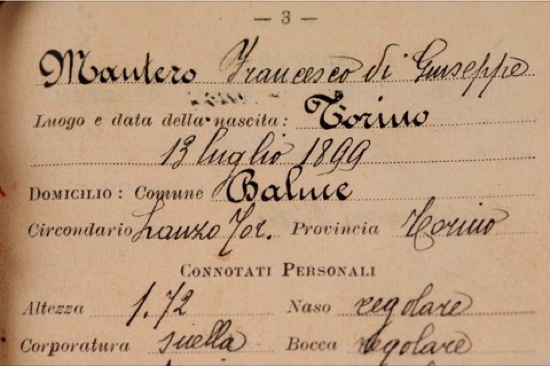 — 3 —
Mantero Francesco di Giuseppe
Luogo e data della nascita: Torino
13 luglio 1899
DOMICILIO: Comune Balme
Circondario Lanzo Tor. Provincia Torino
CONNOTATI PERSONALI
Altezza 1.72 Naso regolare
Corporatura snella Bocca regolare